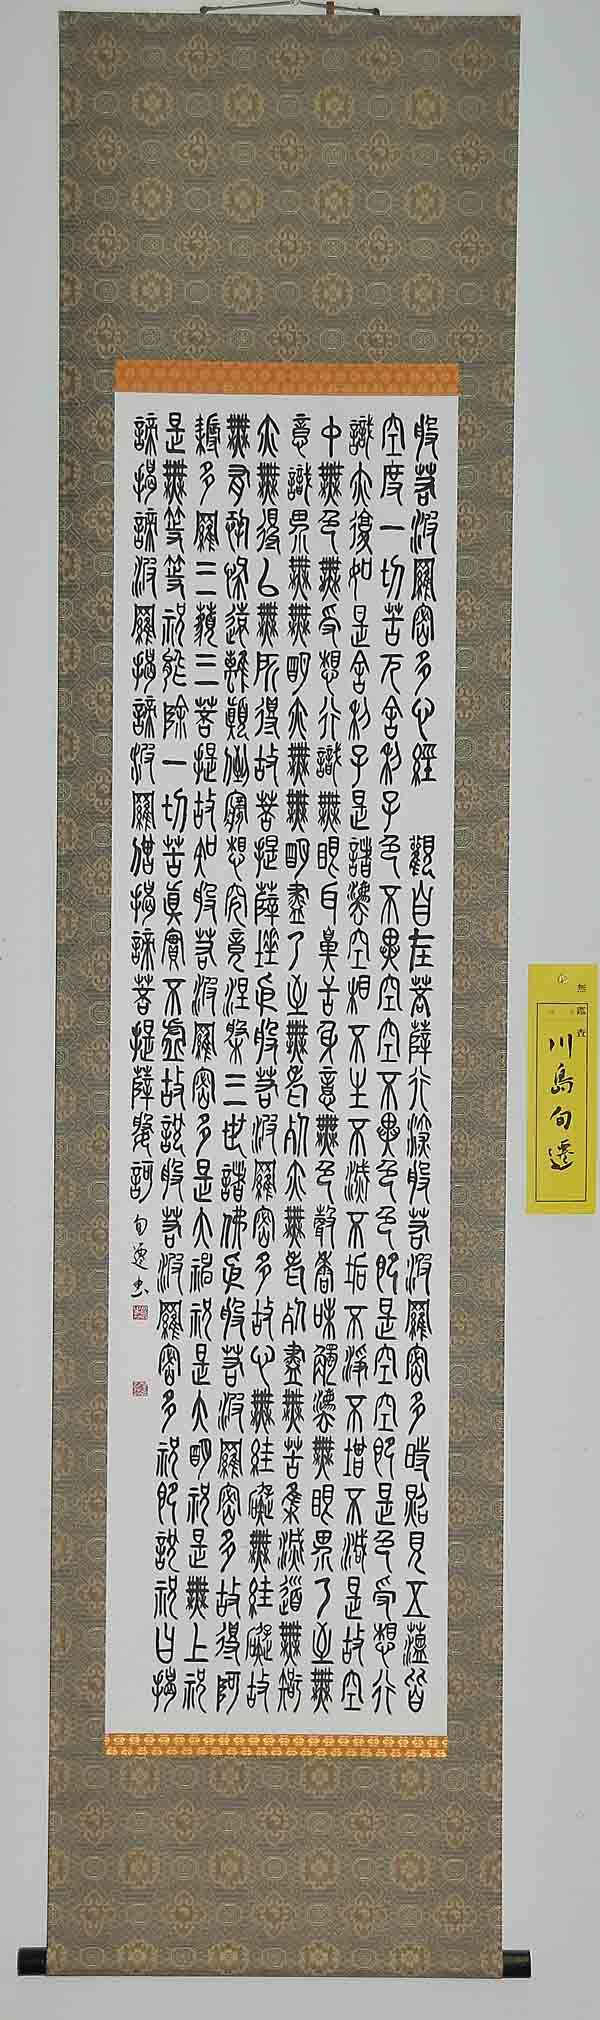 般若波羅密多心經　觀自在菩薩行深般若波羅密多時照見五蘊皆
空度一切苦厄舍利子色不異空空不異色色即是空空即是色受想行
識亦復如是舍利子是諸法空相不生不滅不垢不淨不增不減是故空
中無色無受想行識無眼耳鼻舌身意無色聲香味觸法無眼界乃至無
意識界無無明亦無無明盡乃至無老死亦無老死盡無苦集滅道無智
亦無得以無所得故菩提薩埵依般若波羅密多故心無絓礙無絓礙故
無有恐怖遠離顛倒夢想究竟涅槃三世諸佛依般若波羅密多故得阿
耨多羅三藐三菩提故知般若波羅密多是大神祝是大明祝是無上祝
是無等等祝能除一切苦真實不虛故說般若波羅密多祝即說祝曰揭
諦揭諦波羅揭諦波羅僧揭諦菩提薩婆訶　旬遷書
無鑑査
川島旬遷